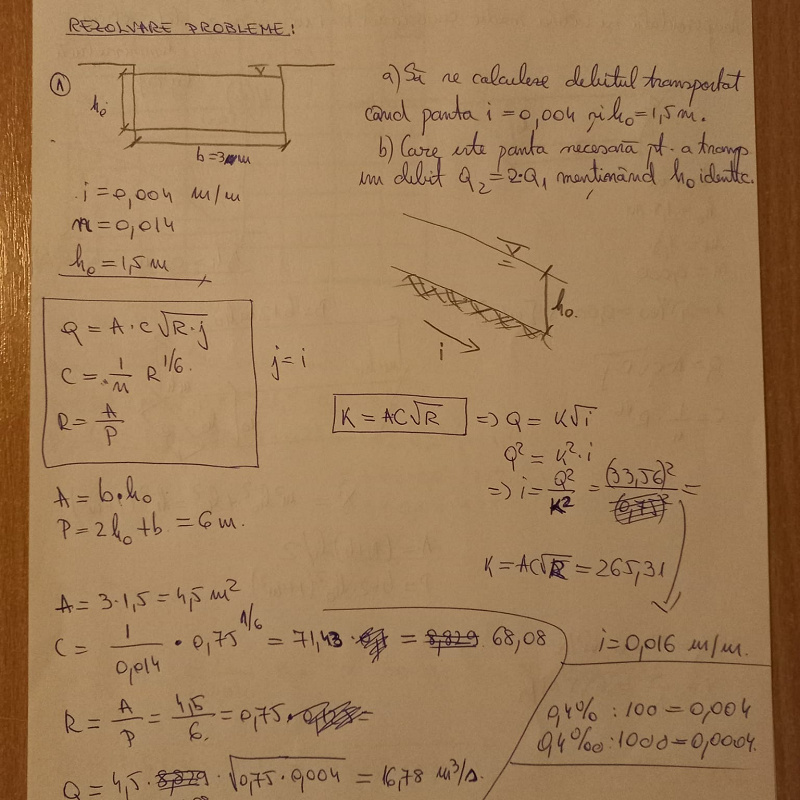 REZOLVARE PROBLEME:
1
h₀
b=3m
a) Să se calculeze debitul transportat
când panta i = 0,004 și h₀ = 1,5 m.
b) Care este panta necesară pt. a transp.
un debit Q₂ = 2·Q₁ menținând h₀ identic.
i = 0,004 m/m
n = 0,014
h₀ = 1,5 m
h₀
i
Q = A·C√R·j
C = 1/n R^1/6
R = A/P
j = i
K = AC√R => Q = K√i
Q² = K²·i
=> i = Q²/K² = (33,56)²/ =
K = AC√R = 265,31
i = 0,016 m/m.
A = b·h₀
P = 2h₀ + b = 6 m.
A = 3·1,5 = 4,5 m²
C = 1/0,014 · 0,75^1/6 = 71,43 · = 68,08
R = A/P = 4,5/6 = 0,75
0,4% : 100 = 0,004
0,4‰ : 1000 = 0,0004
Q = 4,5 · √0,75·0,004 = 16,78 m³/s.